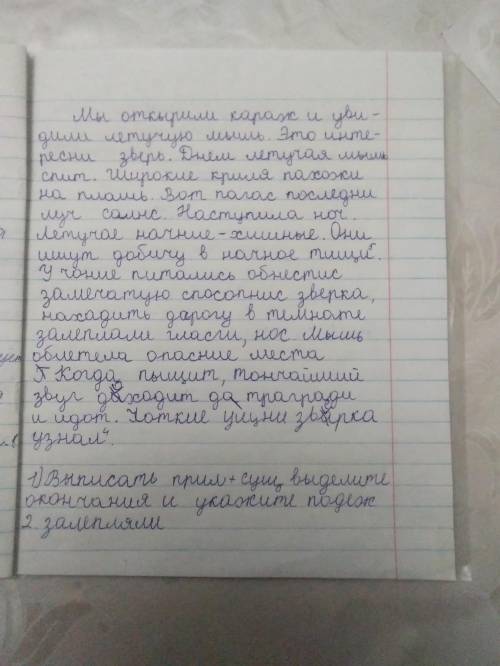 Мы откырили караж и уви-
дили летучую мышь. Это инте-
ресни зверь. Днем летучая мышь
спит. Широкие криля пахожи
на плащь. Вот пагас последни
луч салнс. Наступила ноч.
Летучае начние-хишные. Они
ишут добичу в начное тищи".
Учоние питались обнестис
замечатую способнис зверка,
нахадить дарогу в темнате
залеплали гласги, нос. Мышь
облетела опасние места
Когда пыщит, тончайший
звуг даходит да трагради
и идот. Чоткие уицни зверка
узнал".
1) Выписать прил + сущ, выделите
окончания и укажите подеж
2. залепляли